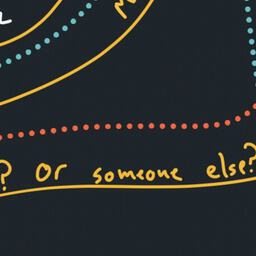 ? Or someone else?